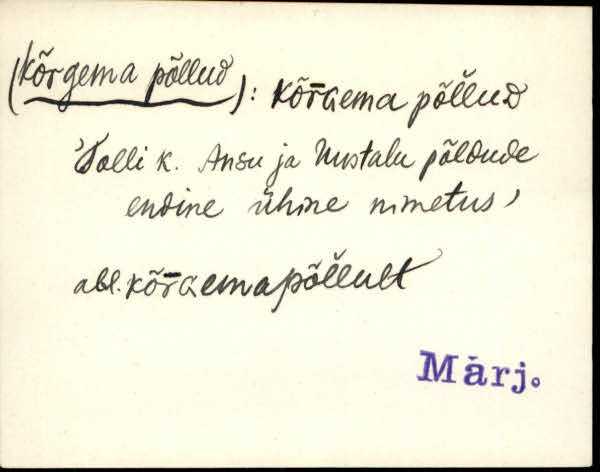 (kõrgema põllud): kõrɢema põl̆lud
'Valli k. Ansu ja Uustalu põldude
endine ühine nimetus'
abl. kõrɢemapõl̆lult
Märj.